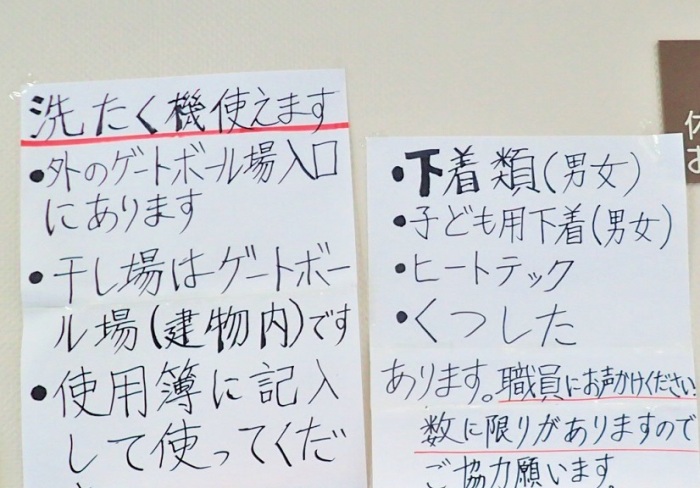 洗たく機使えます
•外のゲートボール場入口
にあります
•干し場はゲートボー
ル場(建物内)です
•使用簿に記入
して使ってくだ
•下着類(男女)
•子ども用下着(男女)
•ヒートテック
•くつした
あります。職員にお声かけください
数に限りがありますので
ご協力願います
休
お